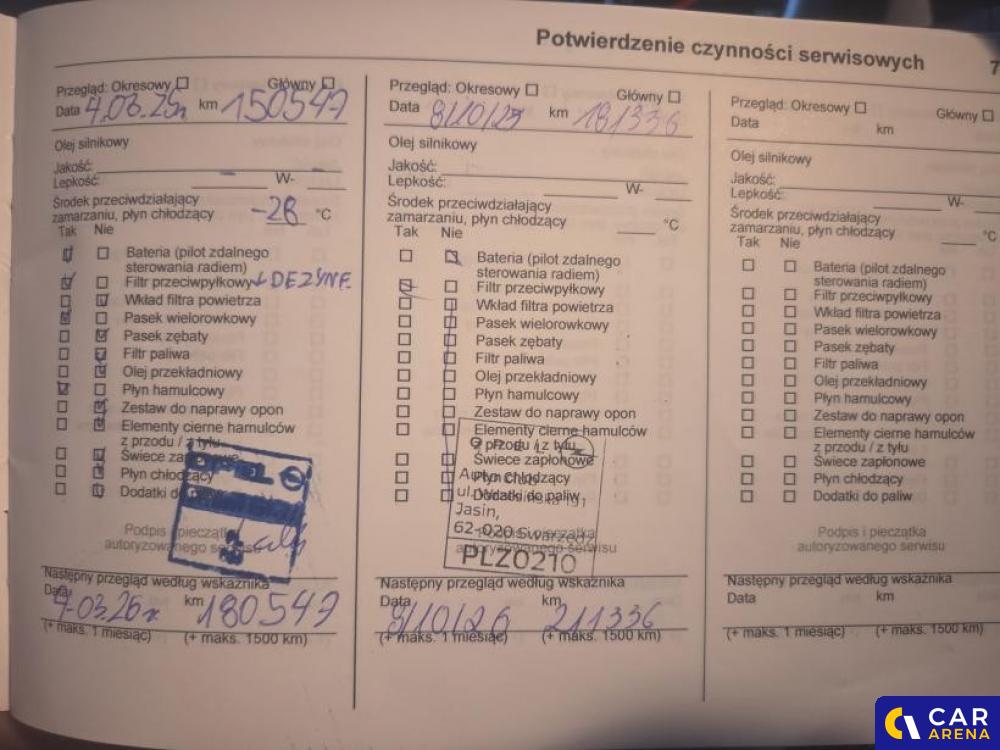 Potwierdzenie czynności serwisowych
7
Przegląd: Okresowy Główny
Data 4.03.25r km 150547
Olej silnikowy
Jakość: -
Lepkość: W-
Środek przeciwdziałający
zamarzaniu, płyn chłodzący -28 °C
Tak Nie
Bateria (pilot zdalnego
sterowania radiem)
Filtr przeciwpyłkowy + DEZYNF.
Wkład filtra powietrza
Pasek wielorowkowy
Pasek zębaty
Filtr paliwa
Olej przekładniowy
Płyn hamulcowy
Zestaw do naprawy opon
Elementy cierne hamulców
z przodu / z tyłu
Świece zapłonowe
Płyn chłodzący
Dodatki do
OPEL
Podpis i pieczątka
autoryzowanego serwisu
Następny przegląd według wskaźnika
Data 4-03.26r km 180547
(+ maks. 1 miesiąc) (+ maks. 1500 km)
Przegląd: Okresowy Główny
Data 8/10/25 km 181336
Olej silnikowy
Jakość:
Lepkość: W-
Środek przeciwdziałający
zamarzaniu, płyn chłodzący °C
Tak Nie
Bateria (pilot zdalnego
sterowania radiem)
Filtr przeciwpyłkowy
Wkład filtra powietrza
Pasek wielorowkowy
Pasek zębaty
Filtr paliwa
Olej przekładniowy
Płyn hamulcowy
Zestaw do naprawy opon
Elementy cierne hamulców
z przodu / z tyłu
OPEL
Świece zapłonowe
Płyn chłodzący
Dodatki do paliw
Jasin,
62-020 Swarzędz
PLZ0210
Podpis i pieczątka
autoryzowanego serwisu
Następny przegląd według wskaźnika
Data 8/10/26 km 211336
(+ maks. 1 miesiąc) (+ maks. 1500 km)
Przegląd: Okresowy Główny
Data km
Olej silnikowy
Jakość:
Lepkość: W-
Środek przeciwdziałający
zamarzaniu, płyn chłodzący °C
Tak Nie
Bateria (pilot zdalnego
sterowania radiem)
Filtr przeciwpyłkowy
Wkład filtra powietrza
Pasek wielorowkowy
Pasek zębaty
Filtr paliwa
Olej przekładniowy
Płyn hamulcowy
Zestaw do naprawy opon
Elementy cierne hamulców
z przodu / z tyłu
Świece zapłonowe
Płyn chłodzący
Dodatki do paliw
Podpis i pieczątka
autoryzowanego serwisu
Następny przegląd według wskaźnika
Data km
(+ maks. 1 miesiąc) (+ maks. 1500 km)
CAR
ARENA